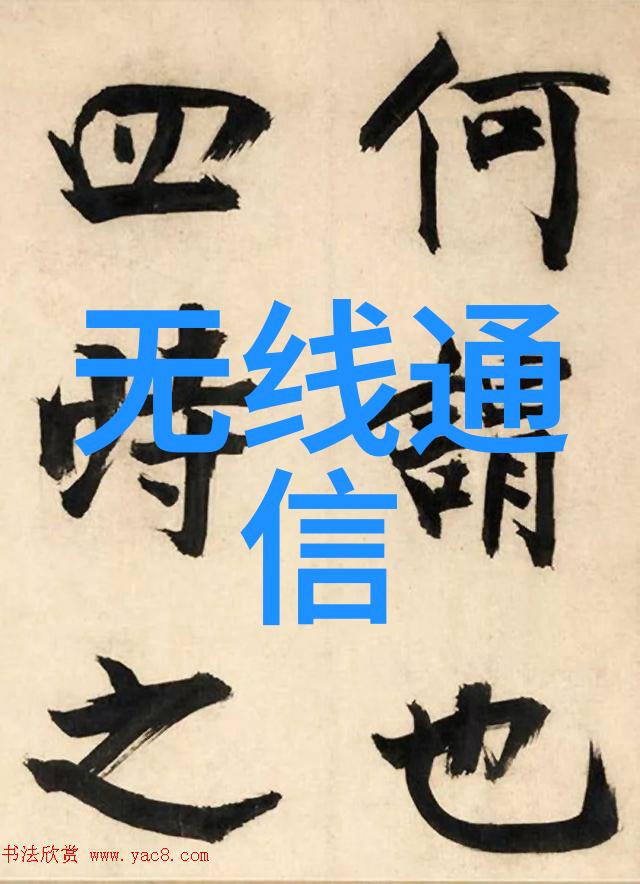 何謂也
四時之
无线通
信
书法欣赏 www.yac8.com